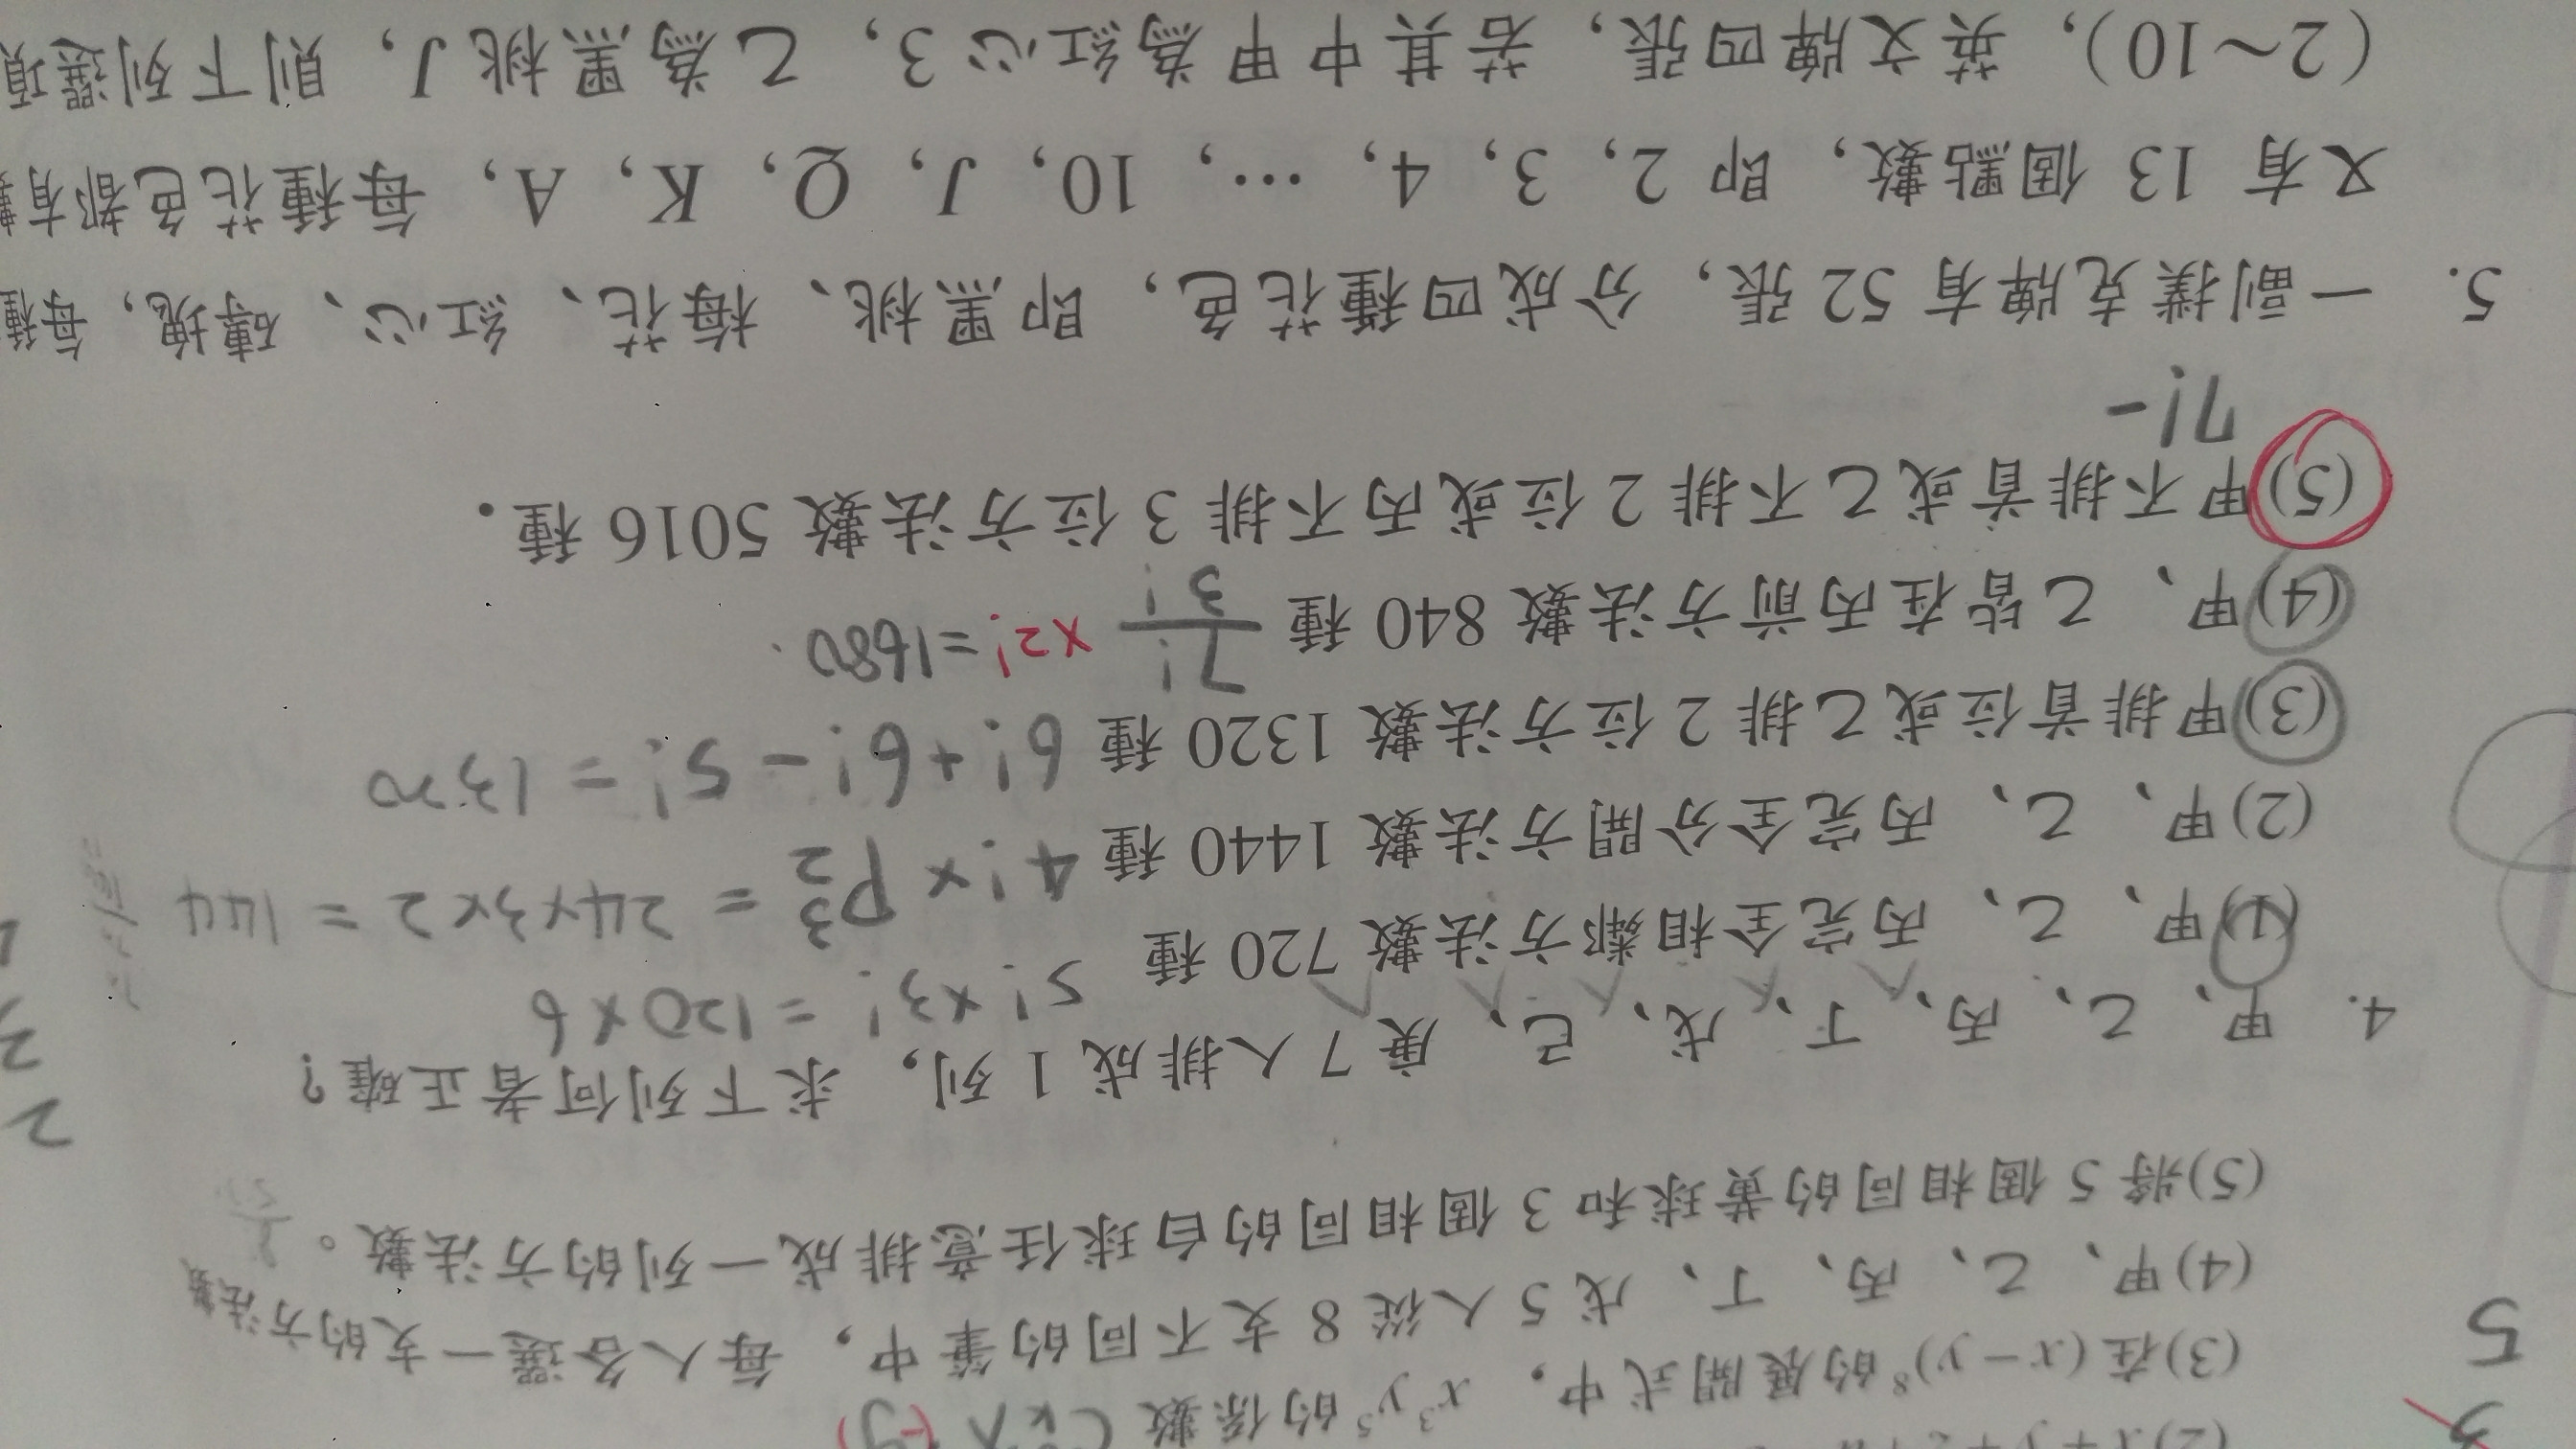 (3)在(x－y)⁸的展開式中，x³y⁵的係數
(4)甲、乙、丙、丁、戊 5 人從 8 支不同的筆中，每人各選一支的方法數
(5)將 5 個相同的黃球和 3 個相同的白球任意排成一列的方法數。
4. 甲、乙、丙、丁、戊、己、庚 7 人排成 1 列，求下列何者正確？
(1)甲、乙、丙完全相鄰方法數 720 種 5!×3! = 120×6
(2)甲、乙、丙完全分開方法數 1440 種 4!×P³₂ = 24×3×2 = 144
(3)甲排首位或乙排 2 位方法數 1320 種 6!+6!－5! = 1320
(4)甲、乙皆在丙前方法數 840 種 7!/3! ×2! =1680
(5)甲不排首或乙不排 2 位或丙不排 3 位方法數 5016 種．
7!－
5. 一副撲克牌有 52 張，分成四種花色，即黑桃、梅花、紅心、磚塊，每種
又有 13 個點數，即 2，3，4，…，10，J，Q，K，A，每種花色都有
(2～10)，英文牌四張，若其中甲為紅心 3，乙為黑桃 J，則下列選項